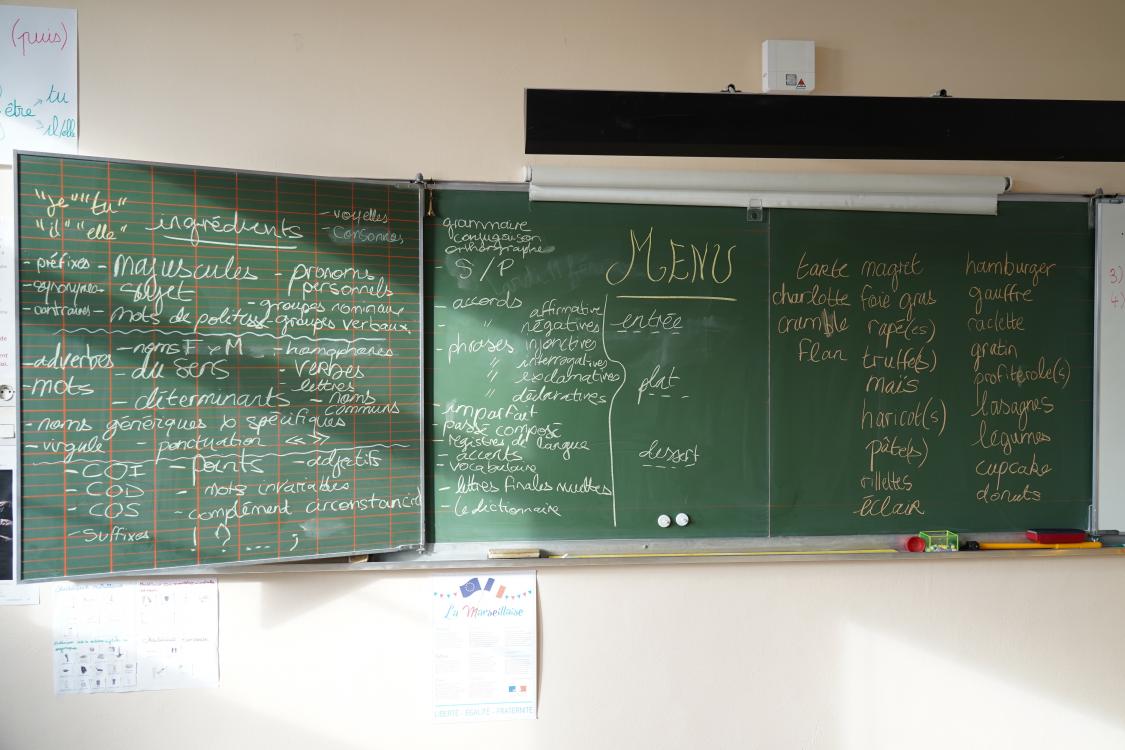 (puis)
être
tu
il/elle
"je" "tu"
"il" "elle"
ingrédients
- voyelles
- consonnes
- préfixes - majuscules - pronoms personnels
- synonymes - sujet
- groupes nominaux
- contraires - mots de politesse - groupes verbaux
- noms F et M - homophones
- adverbes - du sens - verbes
- lettres
- mots - déterminants - noms communs
- noms génériques & spécifiques
- virgule - ponctuation « »
- COI - points - adjectifs
- COD - mots invariables
- COS - complément circonstanciel
- suffixes ! ? ... ;
grammaire
conjugaison
orthographe
- S/P
- accords
- " affirmative
négatives
- phrases injonctives
" interrogatives
" exclamatives
" déclaratives
- imparfait
- passé composé
- registres de langue
- accents
- vocabulaire
- lettres finales muettes
- le dictionnaire
MENU
entrée
plat
dessert
tarte
charlotte
crumble
flan
magret
foie gras
rapé(es)
truffe(s)
maïs
haricot(s)
pâte(s)
rillettes
éclair
hamburger
gauffre
raclette
gratin
profiterole(s)
lasagnes
légumes
cupcake
donuts
3)
4)
La Marseillaise
LIBERTÉ - ÉGALITÉ - FRATERNITÉ